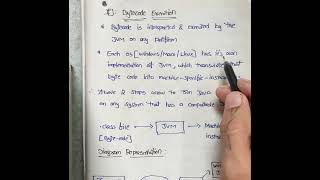 Bytecode Execution
* Bytecode is interpreted & executed by the
JVM on any Platform
* Each os [windows/macos/Linux] has it's own
implementation of JVM, which translates that
byte code into machine-specific-instruc
* Above 2 steps allow to run Java
on any system that has a compatible J
.class file → JVM → Machine
[Byte-code] instruc
Diagram Representation